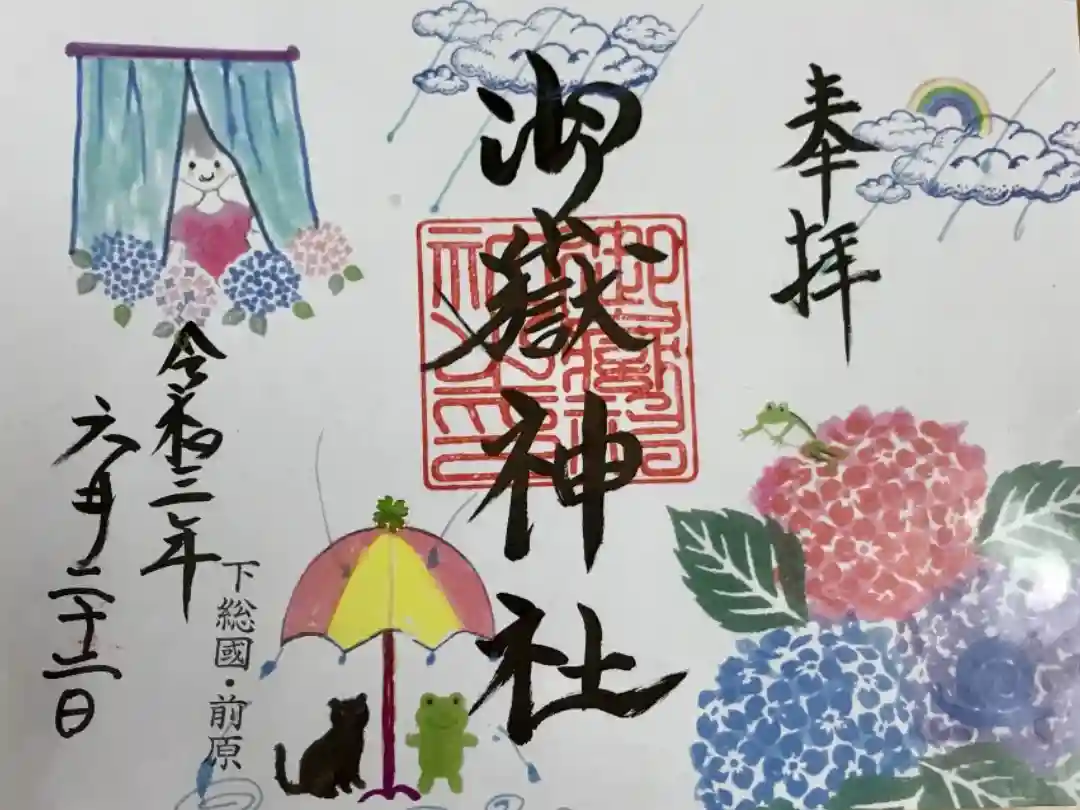 奉拝
御嶽神社
御嶽神
社之印
令和二年
六月二十二日
下総國・前原